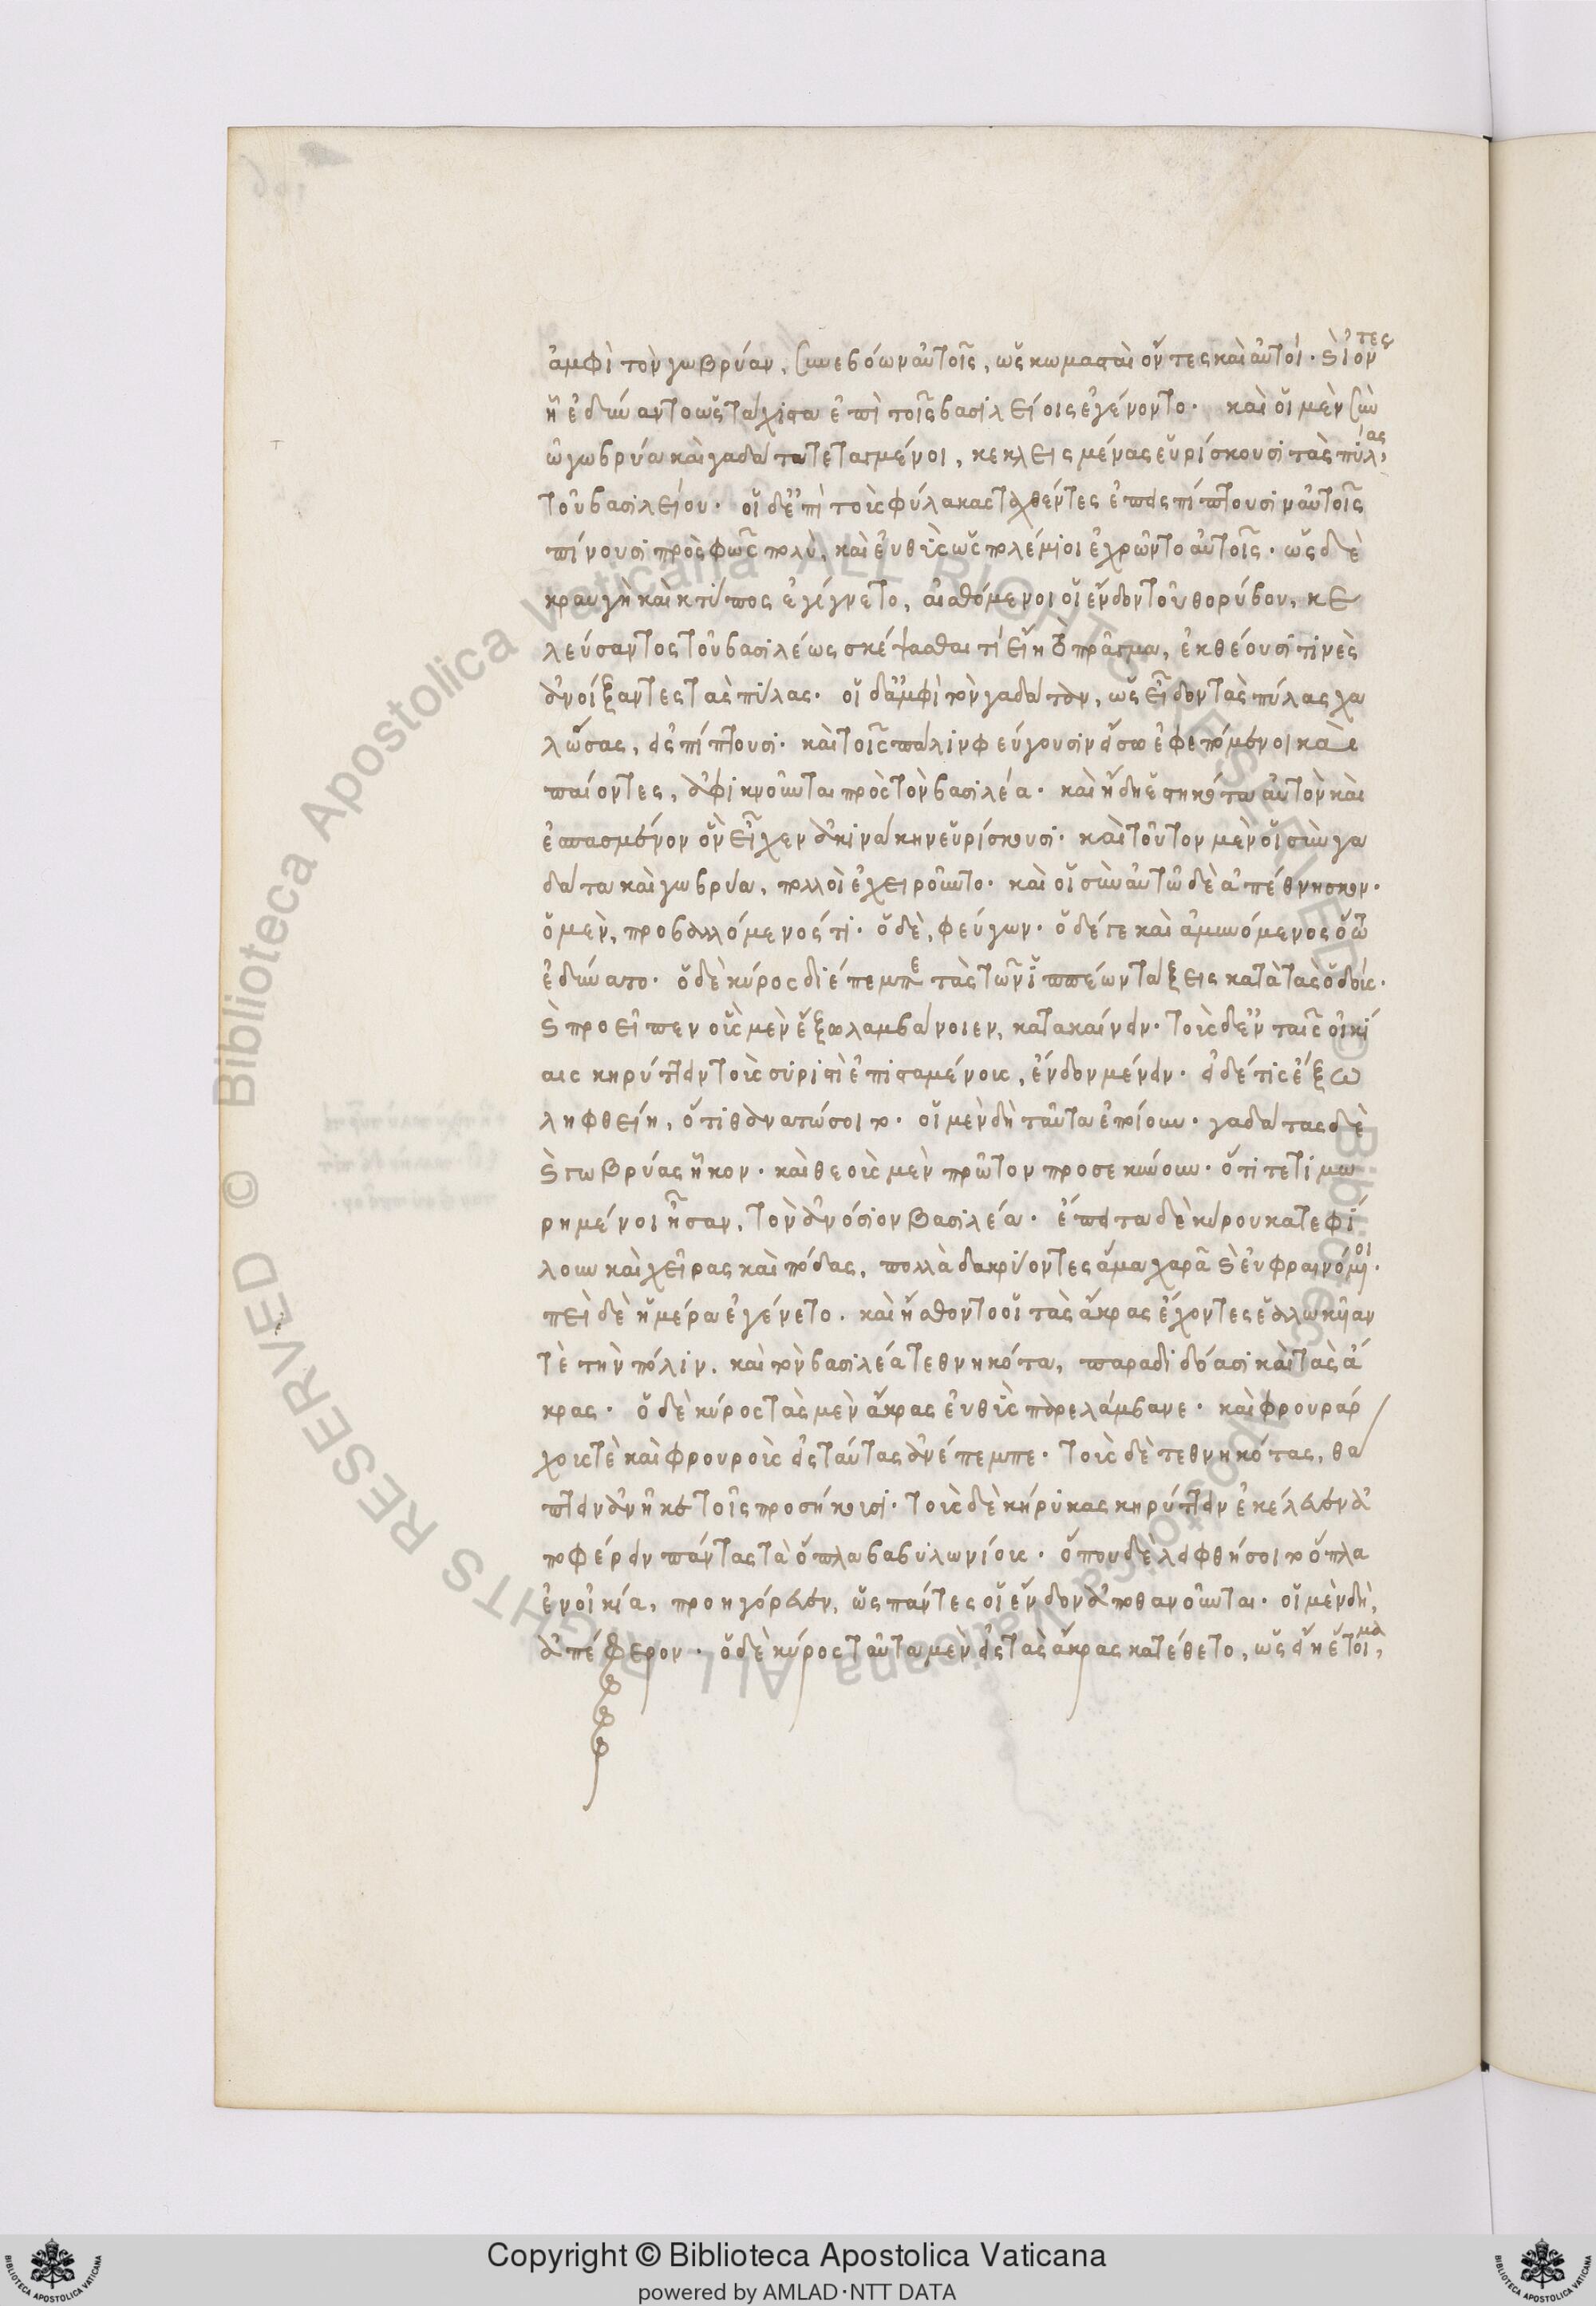 ἀμφὶ τὸν γωβρύαν, συνεβόων αὐτοῖς, ὡς κωμασταὶ ὄντες καὶ αὐτοί· καὶ ἰόντες
ᾗ ἐδύναντο ὡς τάχιστα ἐπὶ τοῖς βασιλείοις ἐγένοντο· καὶ οἱ μὲν σὺν
τῷ γωβρύα καὶ γαδάτα τεταγμένοι, κεκλεισμένας εὑρίσκουσι τὰς πύλας
τοῦ βασιλείου· οἱ δ' ἐπὶ τοὺς φύλακας ταχθέντες ἐπεισπίπτουσιν αὐτοῖς
πίνουσι πρὸς φῶς πολύ, καὶ εὐθὺς ὡς πολέμιοι ἐχρῶντο αὐτοῖς· ὡς δὲ
κραυγὴ καὶ κτύπος ἐγίγνετο, αἰσθόμενοι οἱ ἔνδον τοῦ θορύβου, κε
λεύσαντος τοῦ βασιλέως σκέψασθαι τί εἴη τὸ πρᾶγμα, ἐκθέουσί τινες
ἀνοίξαντες τὰς πύλας· οἱ δ' ἀμφὶ τὸν γαδάταν, ὡς εἶδον τὰς πύλας χα
λώσας, εἰσπίπτουσι· καὶ τοῖς πάλιν φεύγουσιν εἴσω ἐφεπόμενοι καὶ
παίοντες, ἀφικνοῦνται πρὸς τὸν βασιλέα· καὶ ἤδη ἑστηκότα αὐτὸν καὶ
ἐσπασμένον ὃν εἶχεν ἀκινάκην εὑρίσκουσι· καὶ τοῦτον μὲν οἱ σὺν γα
δάτα καὶ γωβρύα, πολλοὶ ἐχειροῦντο· καὶ οἱ σὺν αὐτῷ δὲ ἀπέθνησκον·
ὁ μὲν, προβαλλόμενός τι· ὁ δὲ, φεύγων· ὁ δέ γε καὶ ἀμυνόμενος ὅτῳ
ἐδύνατο· ὁ δὲ κύρος διέπεμπε τὰς τῶν ἱππέων τάξεις κατὰ τὰς ὁδούς·
καὶ προεῖπεν οὓς μὲν ἔξω λαμβάνοιεν, κατακαίνειν· τοὺς δ' ἐν ταῖς οἰκί
αις κηρύττειν τοὺς συριστὶ ἐπισταμένους, ἔνδον μένειν· εἰ δέ τις ἔξω
ληφθείη, ὅτι θανατώσοιτο· οἱ μὲν δὴ ταῦτα ἐποίουν· γαδάτας δὲ
καὶ γωβρύας ἧκον· καὶ θεοὺς μὲν πρῶτον προσεκύνουν· ὅτι τετιμω
ρημένοι ἦσαν, τὸν ἀνόσιον βασιλέα· ἔπειτα δὲ κύρου κατεφί
λουν καὶ χεῖρας καὶ πόδας, πολλὰ δακρύοντες ἅμα χαρᾶ καὶ εὐφραινόμενοι·
πεὶ δὲ ἡμέρα ἐγένετο. καὶ ᾔσθοντο οἱ τὰς ἄκρας ἔχοντες ἑαλωκυῖαν
τὲ τὴν πόλιν, καὶ τὸν βασιλέα τεθνηκότα, παραδιδόασι καὶ τὰς ἄ
κρας· ὁ δὲ κύρος τὰς μὲν ἄκρας εὐθὺς παρελάμβανε· καὶ φρουράρ
χους τὲ καὶ φρουροὺς εἰς ταύτας ἀνέπεμπε· τοὺς δὲ τεθνηκότας, θά
πτειν ἀνῆκε τοῖς προσήκουσι· τοὺς δὲ κήρυκας κηρύττειν ἐκέλευεν ἀ
ποφέρειν πάντας τὰ ὅπλα βαβυλωνίους· ὅπου δὲ λειφθήσοιτο ὅπλα
ἐν οἰκία, προηγόρευεν, ὡς πάντες οἱ ἔνδον ἀποθανοῦνται· οἱ μὲν δὴ,
ἀπέφερον· ὁ δὲ κύρος ταῦτα μὲν εἰς τὰς ἄκρας κατέθετο, ὡς εἴη ἕτοιμα,
Copyright © Biblioteca Apostolica Vaticana
powered by AMLAD·NTT DATA